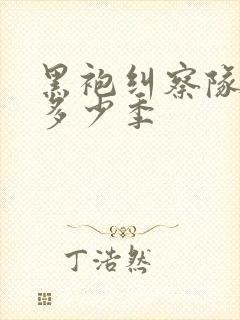 黑袍纠察队
多少季
丁浩然